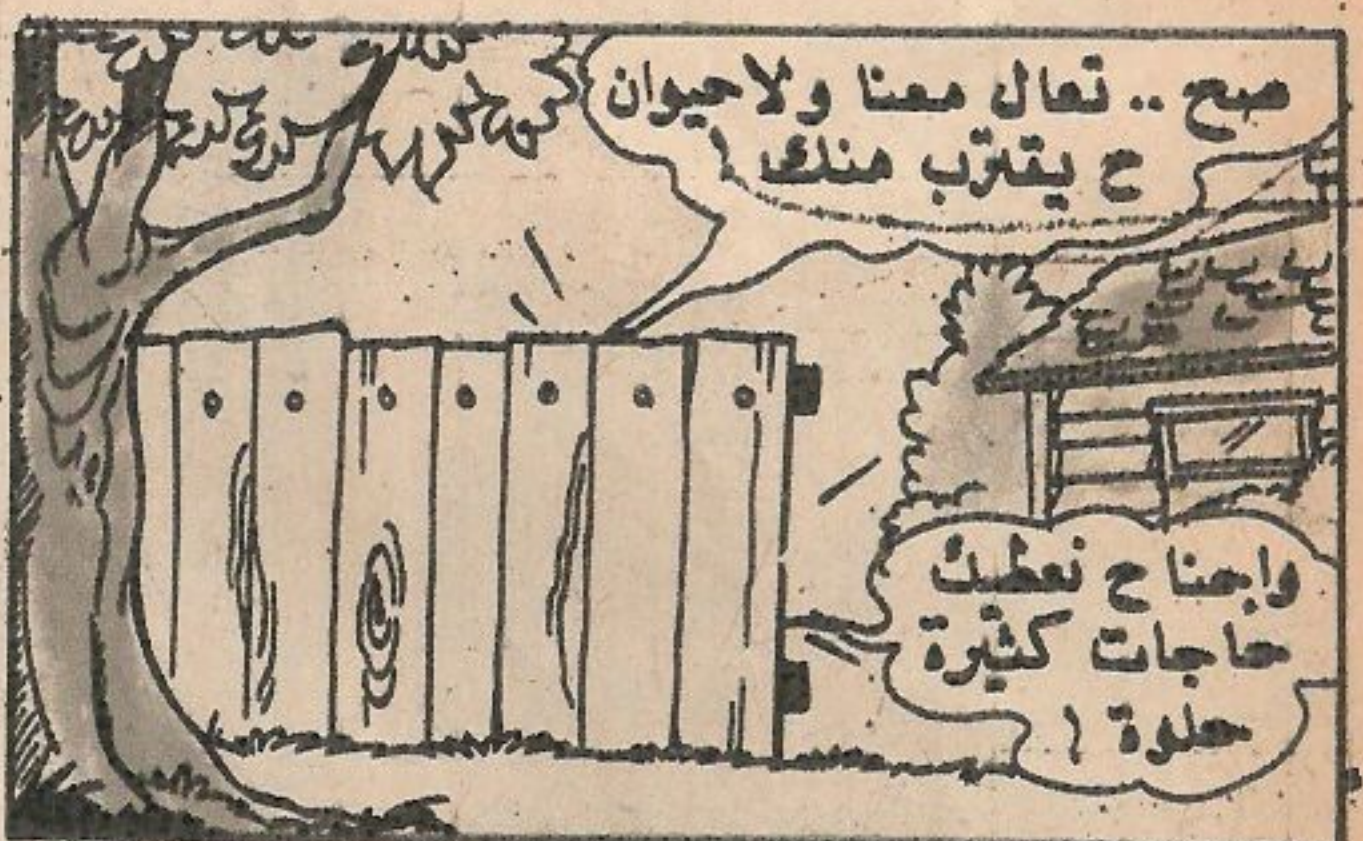 صح .. تعال معنا ولا حيوان
ح يقترب منك !
واحنا ح نعطيك
حاجات كثيرة
حلوة !